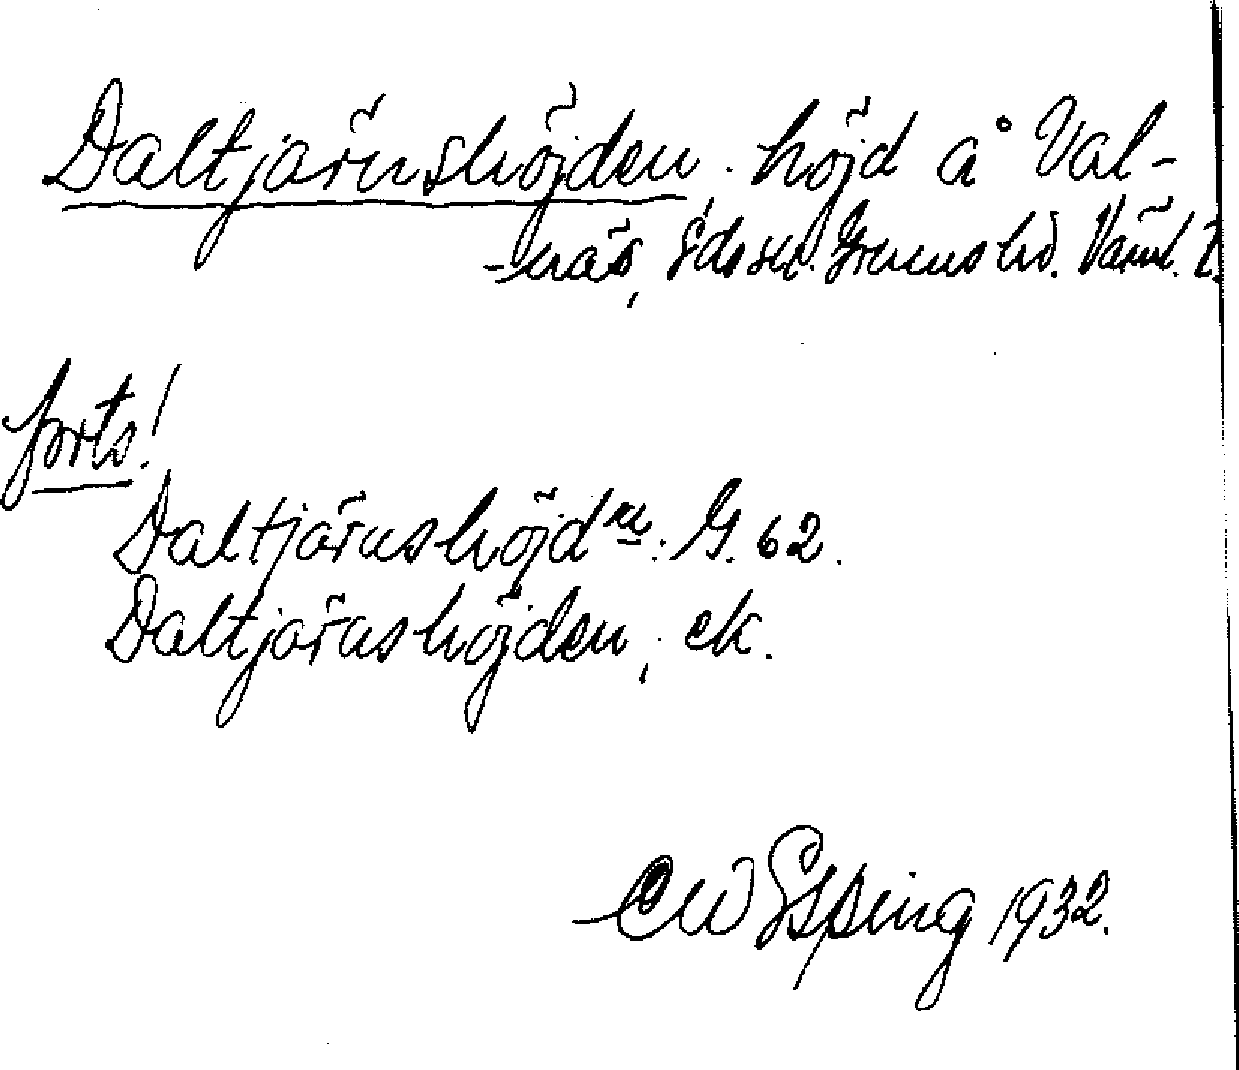 Daltjärnshöjden, höjd å Val-
-näs, Eds sn. Grums hd. Värml. l.
forts!
Daltjärnshöjdne: G. 62.
Daltjärnshöjden, ek.
CW Esping 1932.